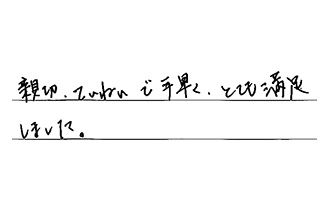 親切、ていねいで手早く、とても満足
しました。